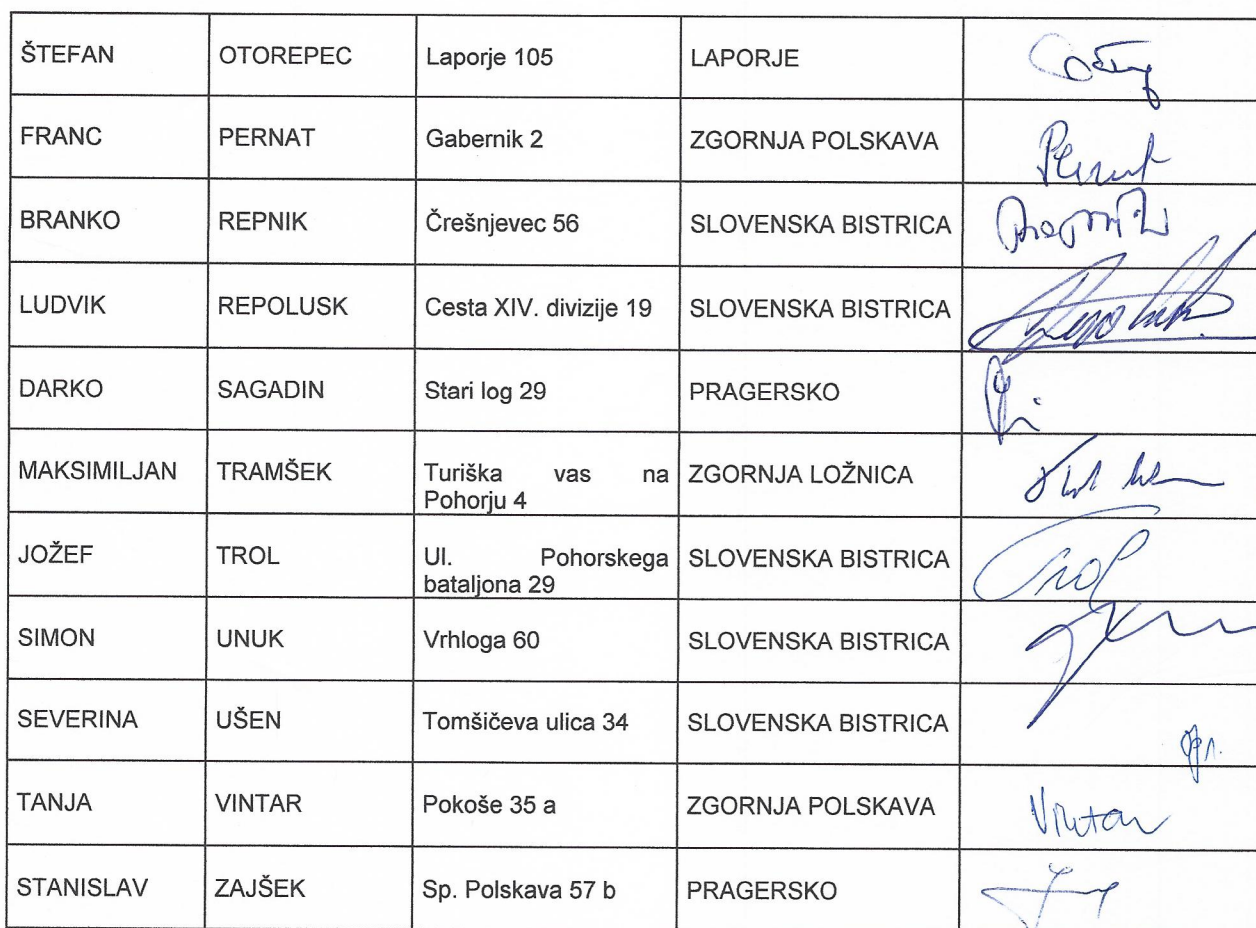 ŠTEFAN OTOREPEC Laporje 105 LAPORJE
FRANC PERNAT Gabernik 2 ZGORNJA POLSKAVA Pernat
BRANKO REPNIK Črešnjevec 56 SLOVENSKA BISTRICA
LUDVIK REPOLUSK Cesta XIV. divizije 19 SLOVENSKA BISTRICA
DARKO SAGADIN Stari log 29 PRAGERSKO
MAKSIMILJAN TRAMŠEK Turiška vas na ZGORNJA LOŽNICA
Pohorju 4
JOŽEF TROL Ul. Pohorskega SLOVENSKA BISTRICA Trol
bataljona 29
SIMON UNUK Vrhloga 60 SLOVENSKA BISTRICA
SEVERINA UŠEN Tomšičeva ulica 34 SLOVENSKA BISTRICA
TANJA VINTAR Pokoše 35 a ZGORNJA POLSKAVA Vintar
STANISLAV ZAJŠEK Sp. Polskava 57 b PRAGERSKO